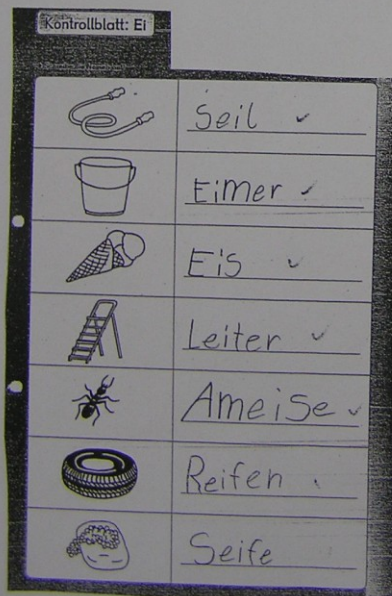 Kontrollblatt: Ei
Seil
Eimer
Eis
Leiter
Ameise
Reifen
Seife